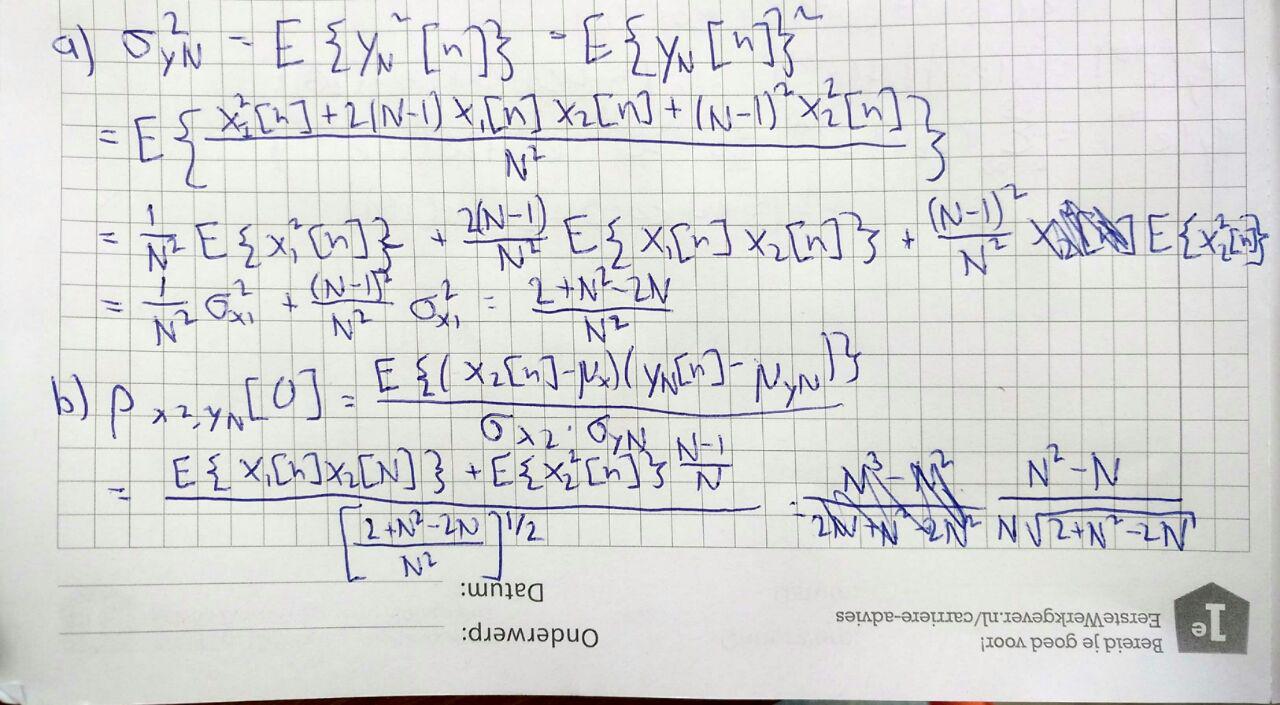 a) σ²yN = E{yN²[n]} - E{yN[n]}²
= E{(x₁²[n] + 2(N-1) x₁[n] x₂[n] + (N-1)² x₂²[n]) / N²}
= 1/N² E{x₁²[n]} + 2(N-1)/N² E{x₁[n] x₂[n]} + (N-1)²/N² E{x₂²[n]}
= 1/N² σ²x₁ + (N-1)²/N² σ²x₁ = (2+N²-2N)/N²
b) ρx2,yN[0] = E{(x₂[n]-μx)(yN[n]-μyN)} / (σx2 · σyN)
= (E{x₁[n]x₂[N]} + E{x₂²[n]} (N-1)/N) / [(2+N²-2N)/N²]^1/2 = (N²-N) / (N√(2+N²-2N))
Datum:
Onderwerp:
1e
EersteWerkgever.nl/carriere-advies
Bereid je goed voor!